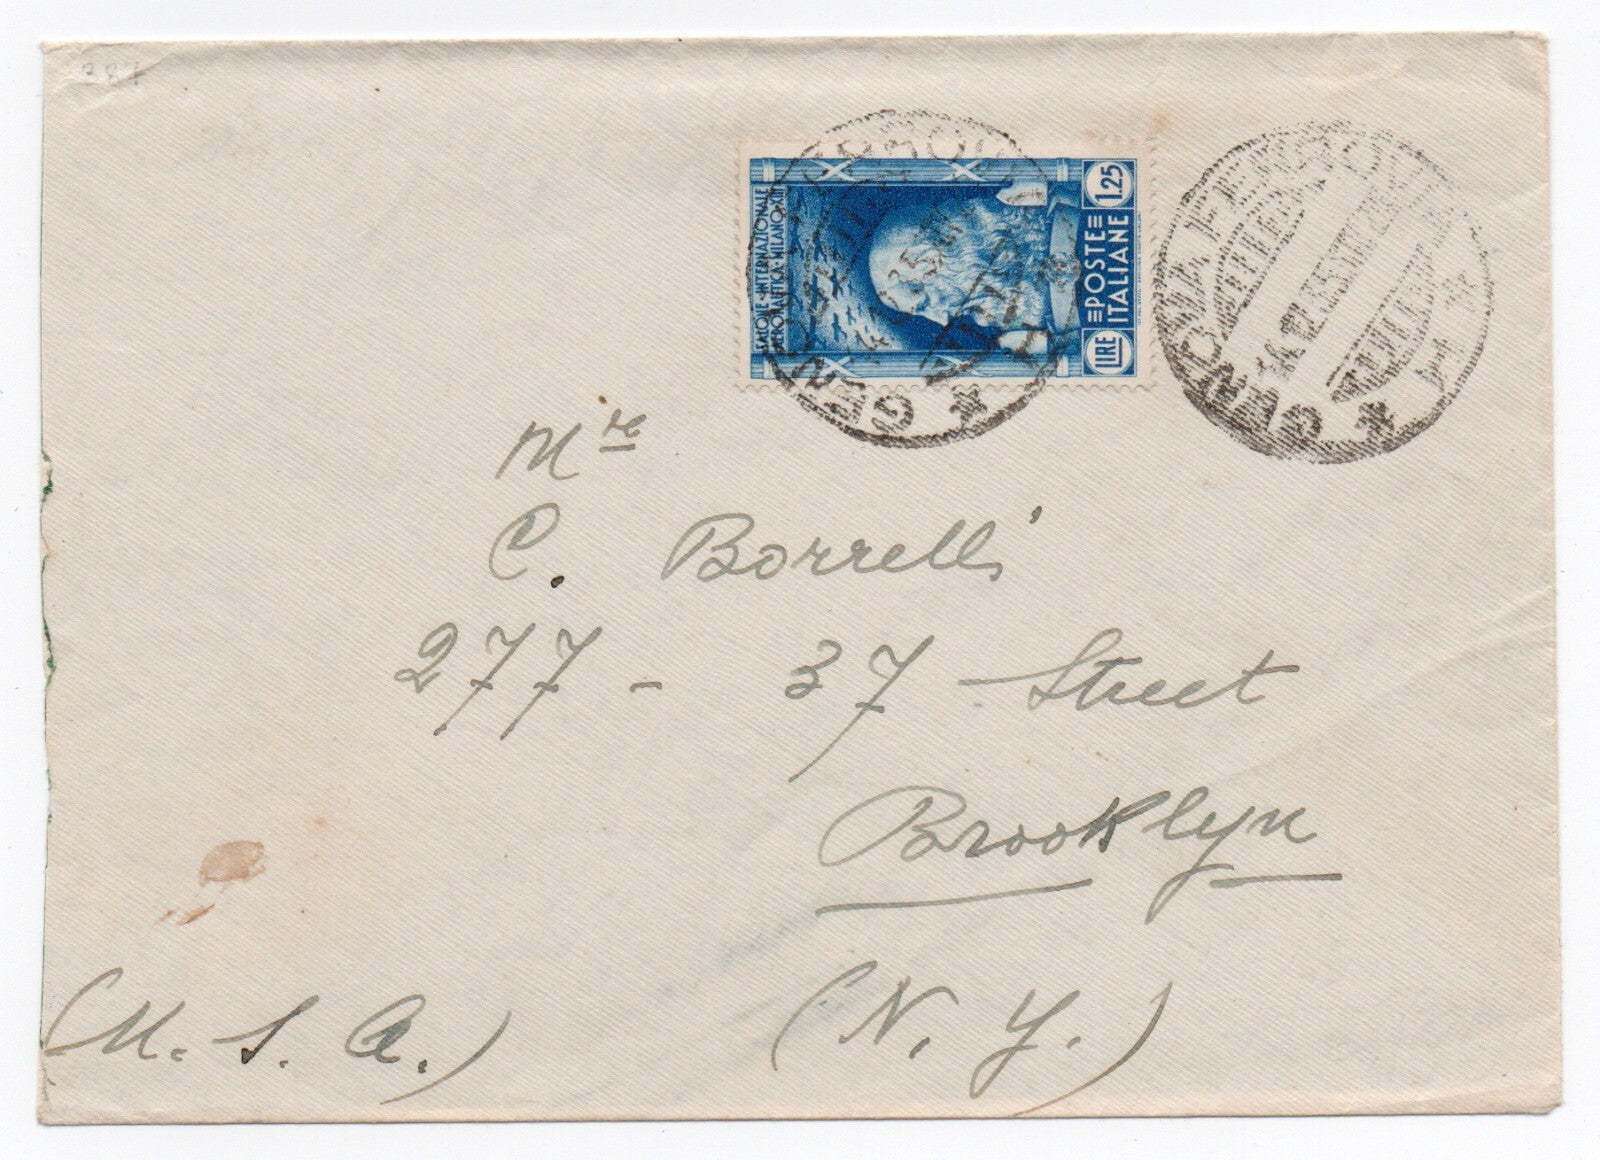 387
SALONE INTERNAZIONALE
AERONAUTICA · MILANO · XIII
LIRE POSTE 1.25
ITALIANE
GENOVA FERROVIA
GENOVA FERROVIA
Mre
C. Borrelli
277 - 37 - Street
Brooklyn
(N. Y.)
(U. S. A.)